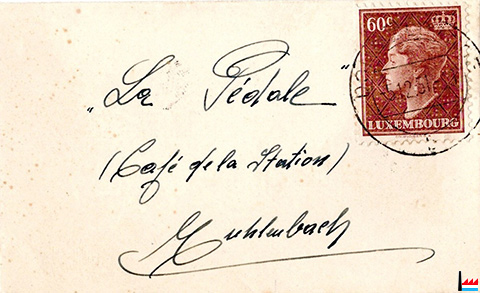 60c
LUXEMBOURG
„La Pédale"
(Café de la Station)
Muhlenbach